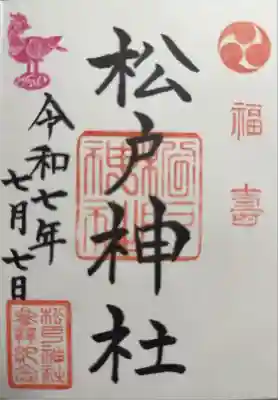 福寿
松戸神社
令和七年
七月七日
松戸神社
参拝記念